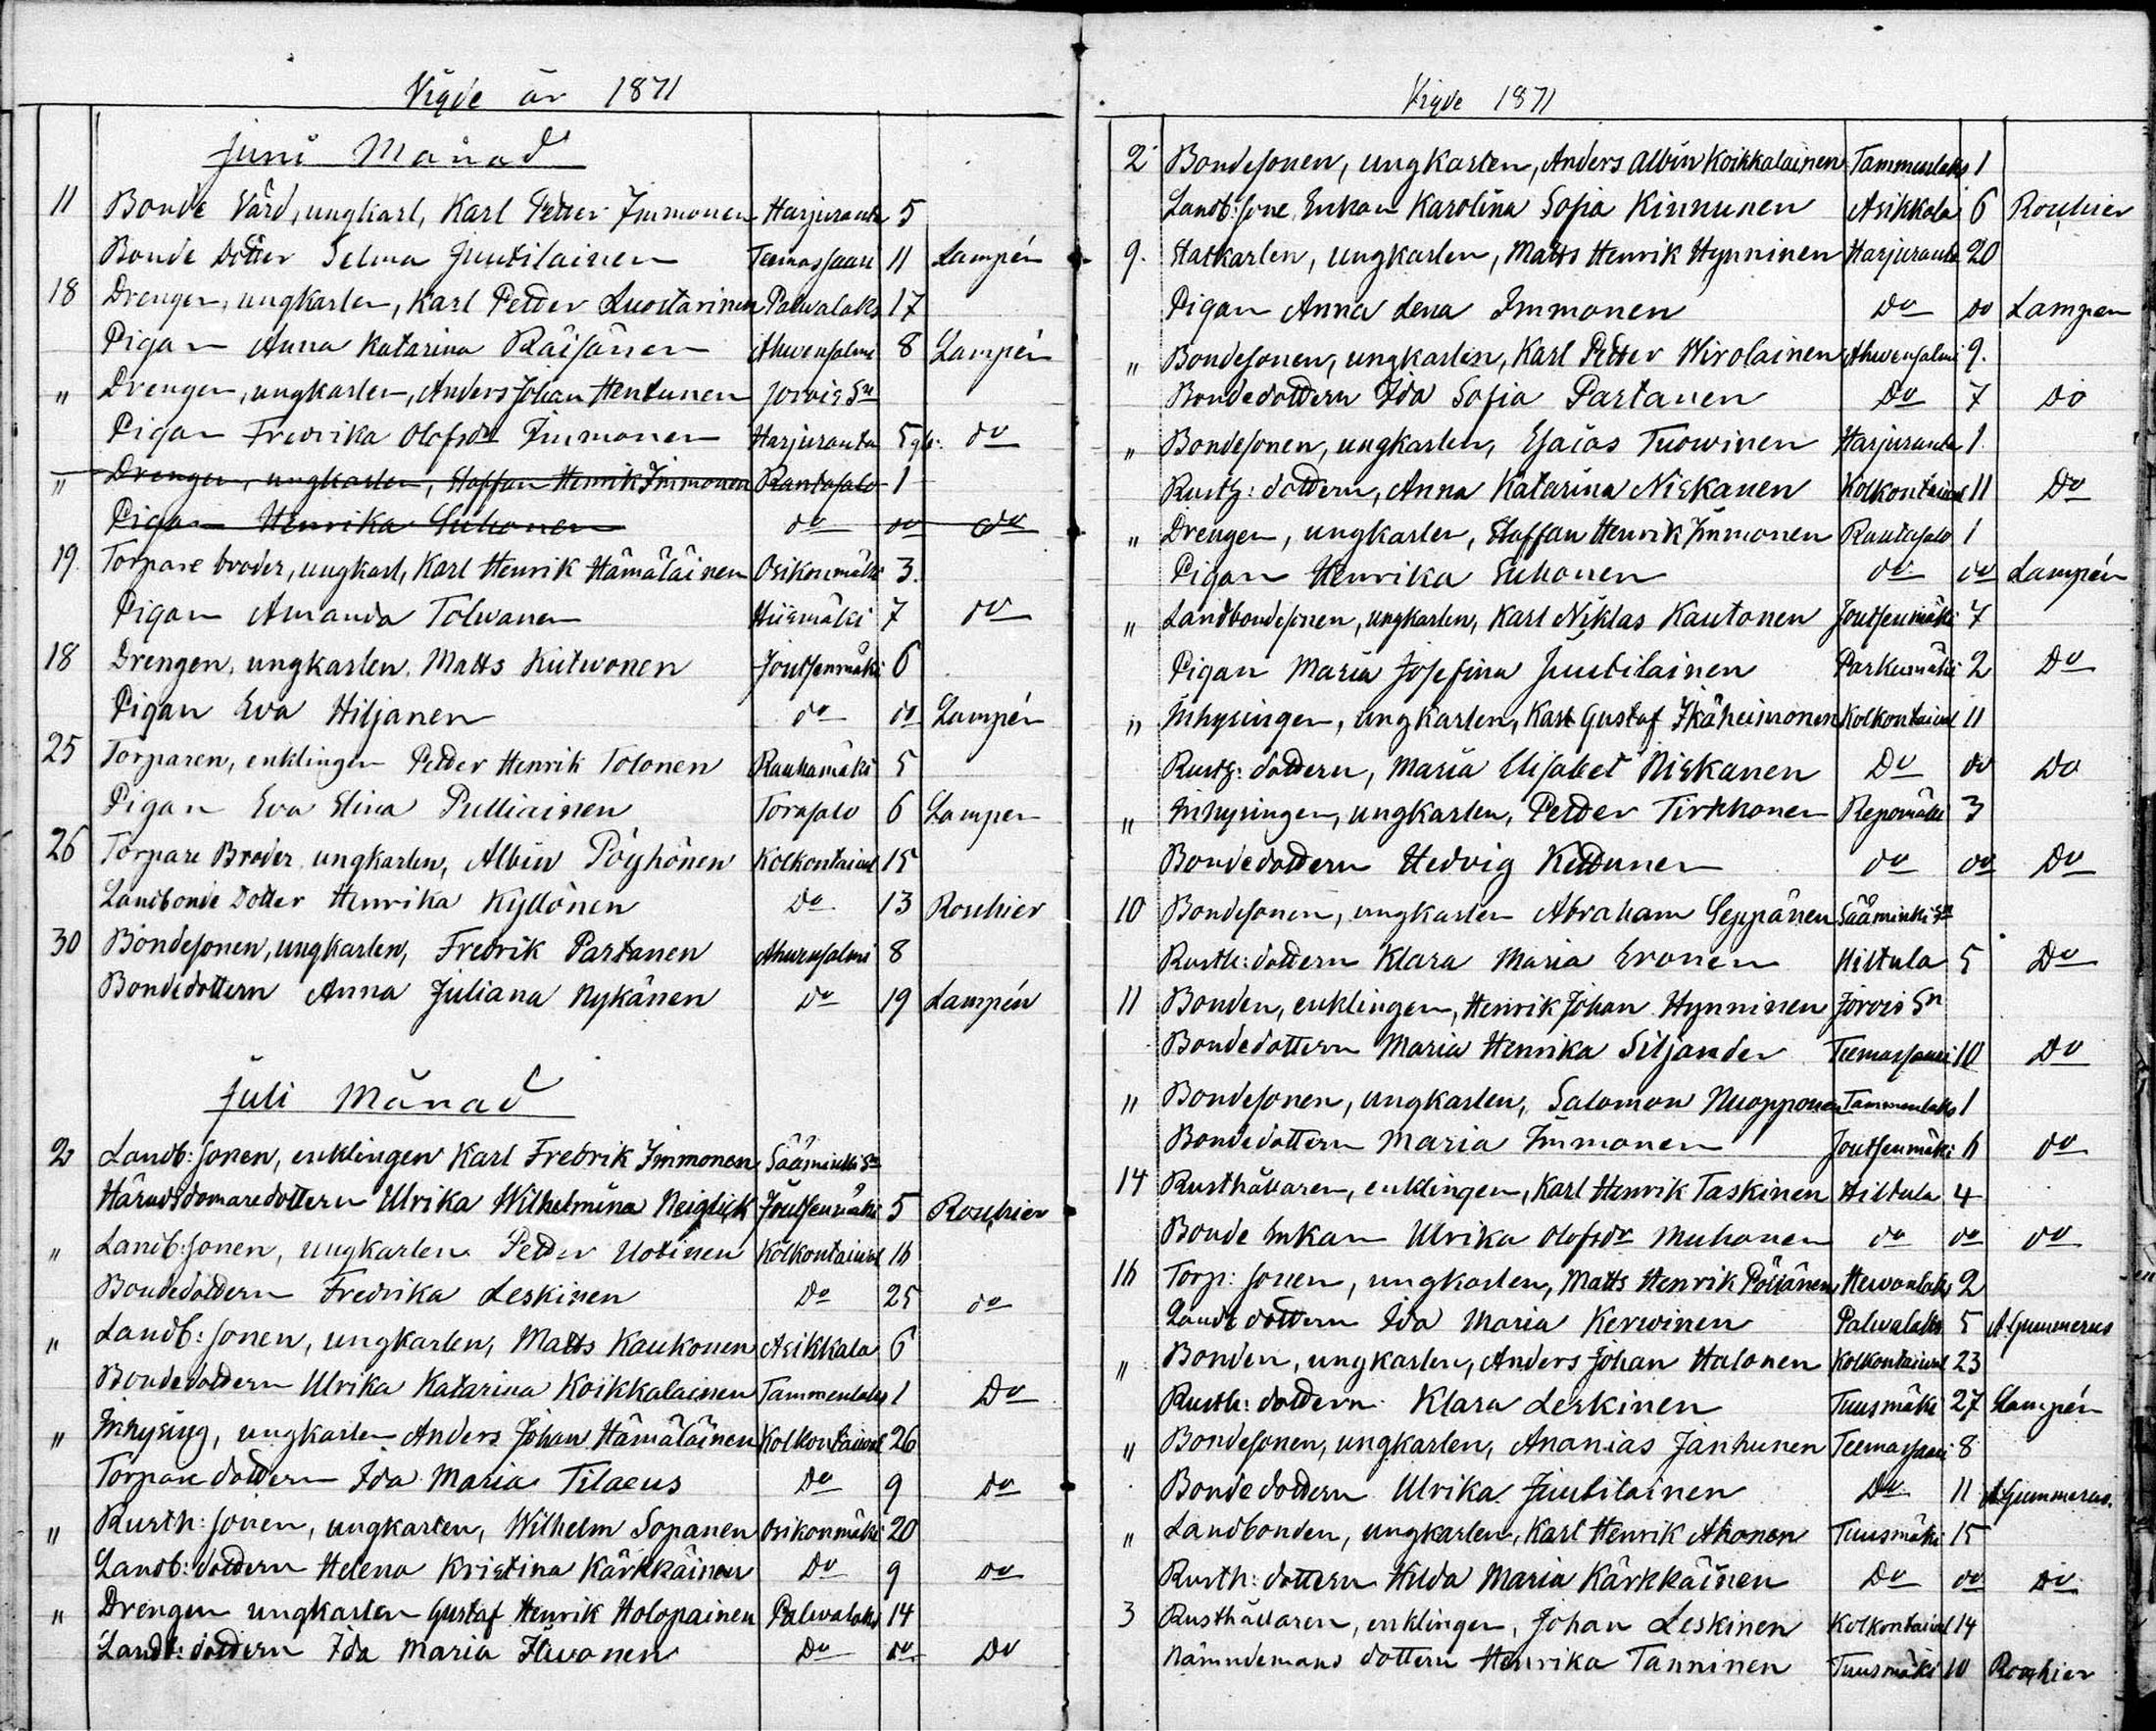 Vigde år 1871
Juni Månad
11 Bonde Värd, ungkarl, Karl Petter Immonen Harjuranta 5
Bonde Dotter Selma Juutilainen Teemassaari 11 Lampén
18 Drengen, ungkarlen, Karl Petter Luostarinen Palvalaks 17
Pigan Anna Katarina Räisänen Ahvensalmi 8 Lampén
" Drengen, ungkarlen, Anders Johan Hentunen Jorois Sn
Pigan Fredrika Olofsdr Immonen Harjuranta 5 do
" Drengen, ungkarlen, Staffan Henrik Immonen Rantasalo 1
Pigan Henrika Suhonen do do do
19. Torpare broder, ungkarl, Karl Henrik Hämäläinen Osikonmäki 3.
Pigan Amanda Tolvanen Hiismäki 7 do
18 Drengen, ungkarlen, Matts Kutwonen Joutsenmäki 6
Pigan Eva Hiljanen do do Lampén
25 Torparen, enklingen Petter Henrik Tolonen Rauhamäki 5
Pigan Eva Stina Pulliainen Torasalo 6 Lampen
26 Torpare Broder ungkarlen, Albin Pöyhönen Kolkontaival 15
Landbonde Dotter Henrika Kyllönen Do 13 Roschier
30 Bondesonen, ungkarlen, Fredrik Partanen Ahvensalmi 8
Bondedottern Anna Juliana Nykänen Do 19 Lampén
Juli Månad
2 Landb: sonen, enklingen Karl Fredrik Immonen Sääminki Sn
Häradsdomaredottern Ulrika Wilhelmina Neiglick Joutsenmäki 5 Roschier
" Landb: sonen, ungkarlen Petter Uotinen Kolkontaival 16
Bondedottern Fredrika Leskinen Do 25 do
" Landb: sonen, ungkarlen, Matts Kaukonen Asikkala 6
Bondedottern Ulrika Katarina Koikkalainen Tammenlaks 1 Do
" Inhysing, ungkarlen Anders Johan Hämäläinen Kolkontaival 26
Torpare dottern Ida Maria Tilaeus Do 9 Do
" Rusth: sonen, ungkarlen, Wilhelm Sopanen Osikonmäki 20
Landb: dottern Helena Kristina Kärkkäinen Do 9 do
" Drengen ungkarlen Gustaf Henrik Holopainen Palvalaks 14
Landb: dottern Ida Maria Ihvonen Do do Do
Vigde 1871
2 Bondesonen, ungkarlen, Anders Albin Koikkalainen Tammenlaks 1
Landb: sone Enkan Karolina Sofia Kinnunen Asikkala 6 Roschier
9. Statkarlen, ungkarlen, Matts Henrik Hynninen Harjuranta 20
Pigan Anna Lena Immonen Do Do Lampen
" Bondesonen, ungkarlen, Karl Petter Wirolainen Ahvensalmi 9.
Bondedottern Ida Sofia Partanen Do 7 Do
" Bondesonen, ungkarlen, Esaias Tuowinen Harjuranta 1
Rusth: dottern, Anna Katarina Niskanen Kolkontaival 11 Do
" Drengen, ungkarlen, Staffan Henrik Immonen Rantasalo 1
Pigan Henrika Suhonen do do Lampén
" Landbondesonen, ungkarlen, Karl Niklas Kautonen Joutsenmäki 7
Pigan Maria Josefina Juutilainen Parkumäki 2 Do
" Inhysingen, ungkarlen, Karl Gustaf Ikäheimonen Kolkontaival 11
Rusth: dottern, Maria Elisabet Niskanen Do do Do
" Inhysingen, ungkarlen, Petter Tirkkonen Repomäki 3
Bondedottern Hedvig Kettunen do do Do
10 Bondesonen, ungkarlen Abraham Seppänen Sääminki Sn
Rusth: dottern Klara Maria Eronen Hiltula 5 Do
11 Bonden, enklingen, Henrik Johan Hynninen Jorois Sn
Bondedottern Maria Henrika Siljander Teemassaari 10 Do
" Bondesonen, ungkarlen, Salomon Nuopponen Tammenlaks 1
Bondedottern Maria Immonen Joutsenmäki 6 do
14 Rusthållaren, enklingen, Karl Henrik Taskinen Hiltula 4
Bonde Enkan Ulrika Olofsdr Muhonen do do do
16 Torp: sonen, ungkarlen, Matts Henrik Pöllänen Hevonlaks 2
Landb dottern Ida Maria Kerwinen Palvalaks 5 A. Gummerus
" Bonden, ungkarlen, Anders Johan Halonen Kolkontaival 23
Rusth: dottern Klara Leskinen Tuusmäki 27 Lampén
" Bondesonen, ungkarlen, Ananias Janhunen Teemassaari 8
Bondedottern Ulrika Juutilainen Do 11 A. Gummerus.
" Landbonden, ungkarlen, Karl Henrik Ahonen Tuusmäki 15
Rusth: dottern Hilda Maria Kärkkäinen Do do Do
3 Rusthållaren, enklingen, Johan Leskinen Kolkontaival 14
Nämndemans dottern Henrika Tanninen Tuusmäki 10 Roschier